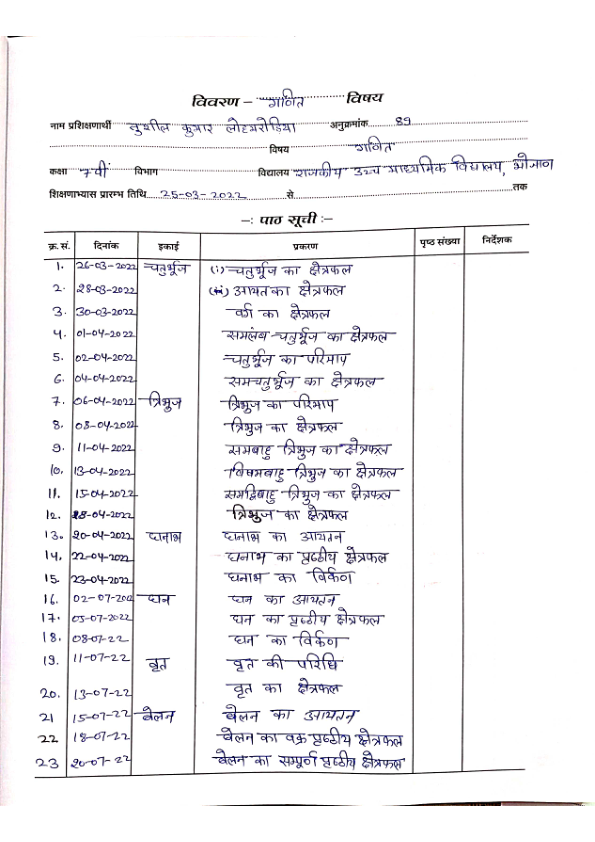 विवरण – गणित विषय
नाम प्रशिक्षणार्थी सुशील कुमार अनुक्रमांक 89
विषय गणित
कक्षा 7वीं विभाग विद्यालय राजकीय उच्च माध्यमिक विद्यालय,
शिक्षणाभ्यास प्रारम्भ तिथि 25-03-2022 से तक
-: पाठ सूची :-
क्र. सं. दिनांक इकाई प्रकरण पृष्ठ संख्या निर्देशक
1. 26-03-2022 चतुर्भूज (i) चतुर्भूज का क्षेत्रफल
2. 28-03-2022 (ii) आयत का क्षेत्रफल
3. 30-03-2022 वर्ग का क्षेत्रफल
4. 01-04-2022 समलंब चतुर्भूज का क्षेत्रफल
5. 02-04-2022 चतुर्भूज का परिमाप
6. 04-04-2022 समचतुर्भूज का क्षेत्रफल
7. 06-04-2022 त्रिभुज त्रिभुज का परिमाप
8. 08-04-2022 त्रिभुज का क्षेत्रफल
9. 11-04-2022 समबाहु त्रिभुज का क्षेत्रफल
10. 13-04-2022 विषमबाहु त्रिभुज का क्षेत्रफल
11. 15-04-2022 समद्विबाहु त्रिभुज का क्षेत्रफल
12. 18-04-2022 त्रिभुज का क्षेत्रफल
13. 20-04-2022 घनाभ घनाभ का आयतन
14. 22-04-2022 घनाभ का पृष्ठीय क्षेत्रफल
15. 23-04-2022 घनाभ का विर्कण
16. 02-07-2022 घन घन का आयतन
17. 05-07-2022 घन का पृष्ठीय क्षेत्रफल
18. 08-07-22 घन का विर्कण
19. 11-07-22 वृत वृत की परिधि
20. 13-07-22 वृत का क्षेत्रफल
21 15-07-22 बेलन बेलन का आयतन
22 18-07-22 बेलन का वक्र पृष्ठीय क्षेत्रफल
23 20-07-22 बेलन का सम्पूर्ण पृष्ठीय क्षेत्रफल